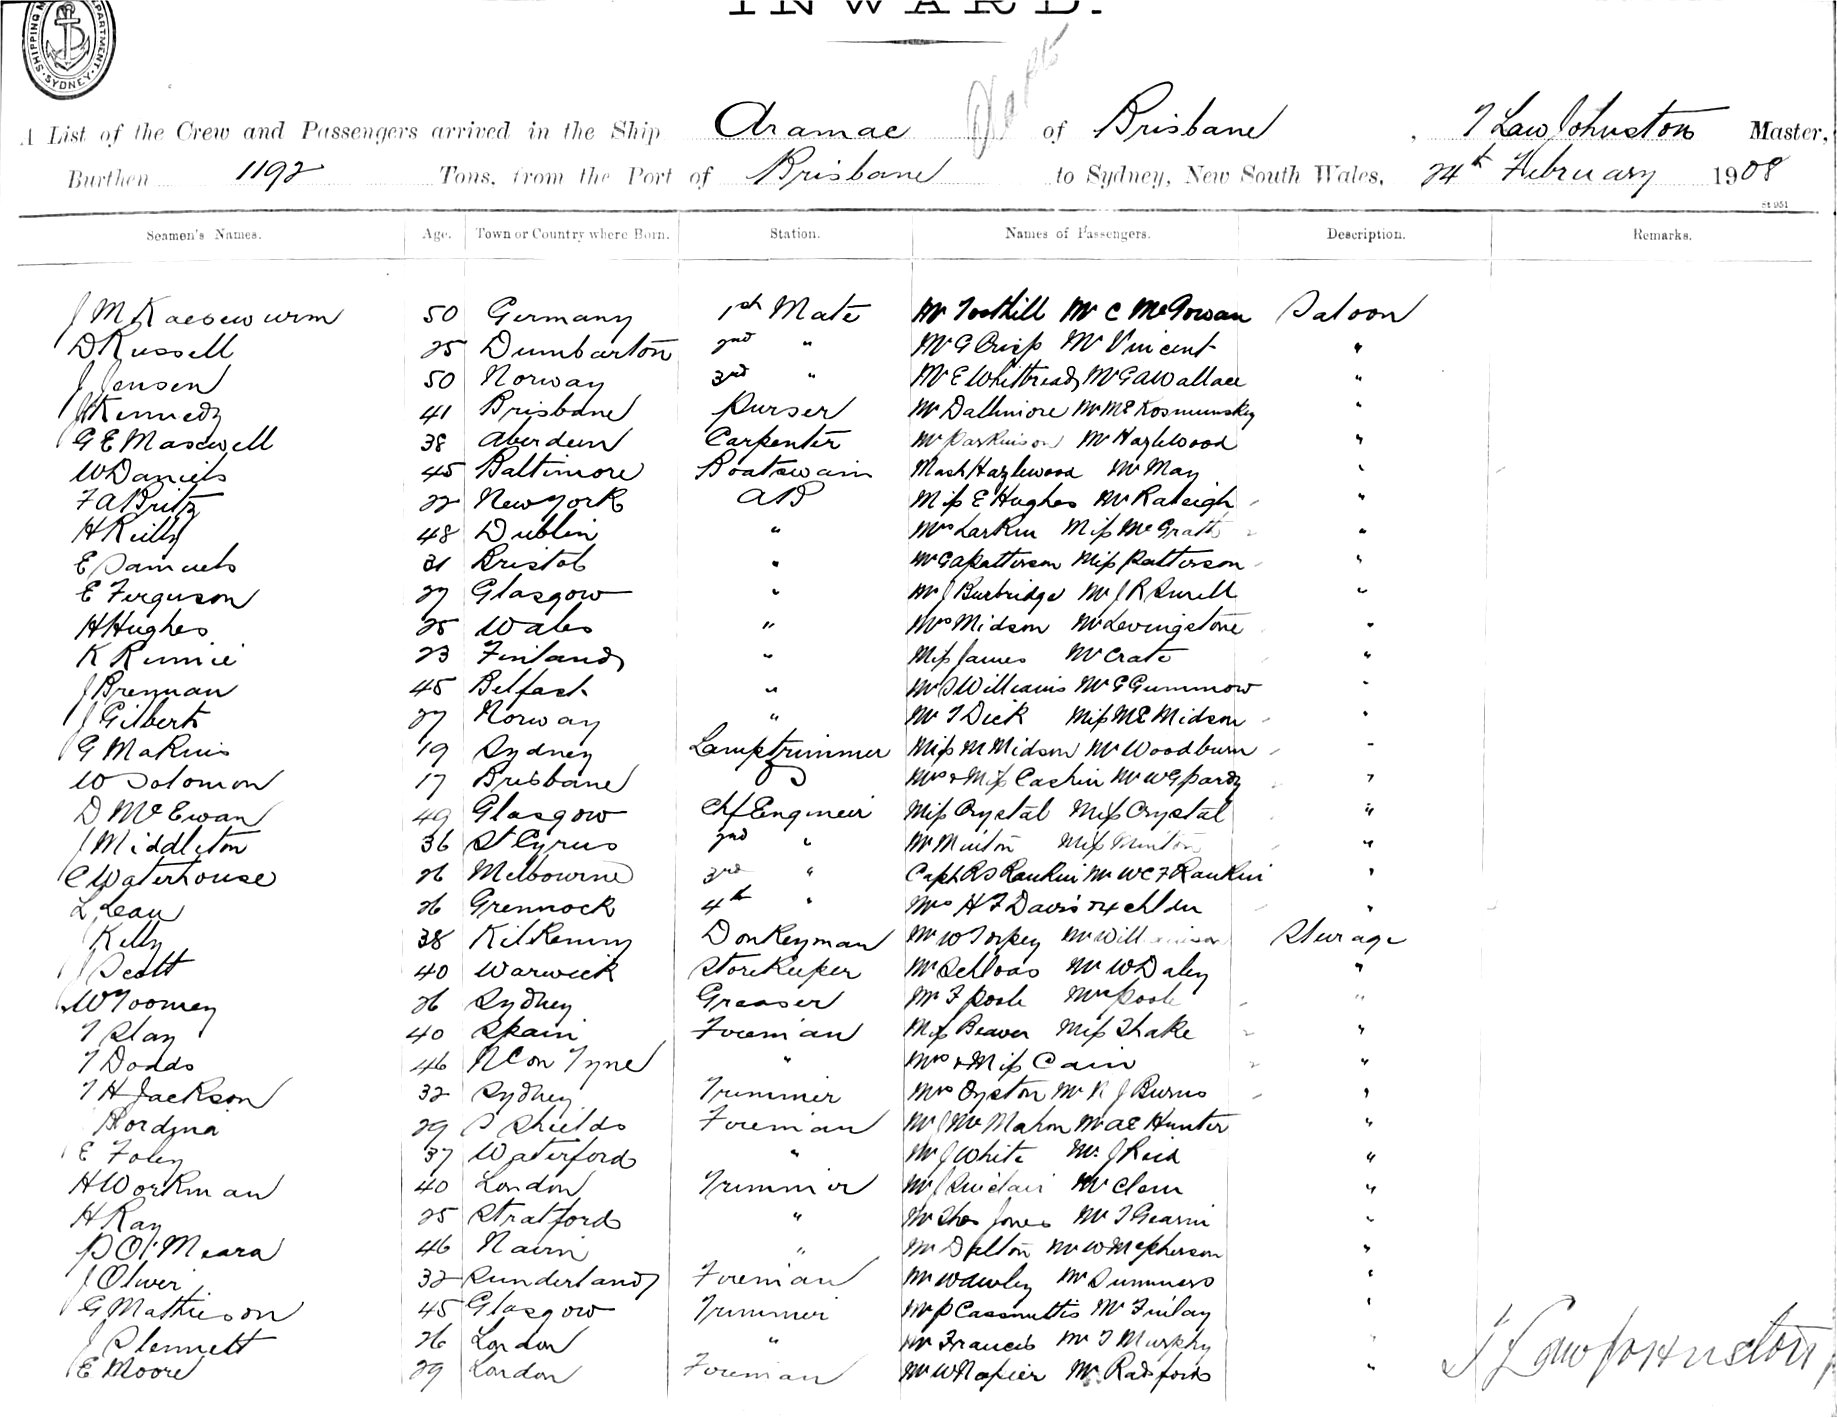 INWARD.
SHIPPING M DEPARTMENT SYDNEY
A List of the Crew and Passengers arrived in the Ship Aramac of Brisbane, T Law Johnston Master,
Burthen 1192 Tons, from the Port of Brisbane to Sydney, New South Wales, 24th February 1908
St 951
Seamen's Names. Age. Town or Country where Born. Station. Names of Passengers. Description. Remarks.
J M 50 Germany 1st Mate Mr Toothill Mr C McGowan Saloon
D Russell 25 Dumbarton 2nd " Mr G Crisp Mr Vincent "
J Jensen 50 Norway 3rd " Mr E Whitbread Mr G A Wallace "
J Kennedy 41 Brisbane Purser Mr Dallimore Mr M E Kosmunsky "
G E Maxwell 38 Aberdeen Carpenter Mr Parkinson Mr Hazlewood "
W Daniels 45 Baltimore Boatswain Mast Hazlewood Mr May "
F A Britz 22 New York AB Miss E Hughes Mr Raleigh "
H Reilly 48 Dublin " Mrs Larkin Miss McGrath "
E Samuels 31 Bristol " Mr G A Patterson Miss Patterson "
E Ferguson 27 Glasgow " Mr J Burbridge Mr J R "
H Hughes 25 Wales " Mrs Midson Mr Levingstone "
K Rinnie 23 Finland " Miss James Mr Crate "
J Brennan 45 Belfast " Mr S Williams Mr G Gummow "
J Gilbert 27 Norway " Mr T Dick Miss M E Midson "
G Makins 19 Sydney Lamptrimmer Miss M Midson Mr Woodburn "
W Solomon 17 Brisbane Mrs & Miss Cashin Mr W G Pardy "
D McEwan 49 Glasgow Chf Engineer Miss Crystal Miss Crystal "
J Middleton 36 St Cyrus 2nd " Mr Minton Miss Minton "
C Waterhouse 26 Melbourne 3rd " Capt R S Rankin Mr W C F Rankin "
L Lean 26 Grennock 4th " Mrs H F Davis & 4 chldn "
J Kelly 38 Kilkenny Donkeyman Mr W Torpey Mr Steerage
J Scott 40 Warwick Storekeeper Mr Schloss Mr W Daley "
W Toomey 26 Sydney Greaser Mr F Poole Mrs Poole "
T Slay 40 Spain Foreman Miss Beaver Miss Thake "
T Dodds 46 N C on Tyne " Mrs & Miss Cain "
T H Jackson 32 Sydney Trimmer Mrs Oyston Mr R J Burns "
Bordina 29 S Shields Foreman Mr J McMahon Mr A E Hunter "
E Foley 37 Waterford " Mr J White Mr J Reid "
H Workman 40 London Trimmer Mr J Sinclair Mr Clem "
H Ray 25 Stratford " Mr Thos Jones Mr T Gearin "
P O'Meara 46 Nairn " Mr Dalton Mr W McPherson "
J Oliver 32 Sunderland Foreman Mr W Mr Summers "
G Mathieson 45 Glasgow Trimmer Mr P Cassmettis Mr Finlay "
J Slennett 26 London " Mr Francis Mr T Murphy "
E Moore 29 London Foreman Mr W Napier Mr Radford "
T Law Johnston